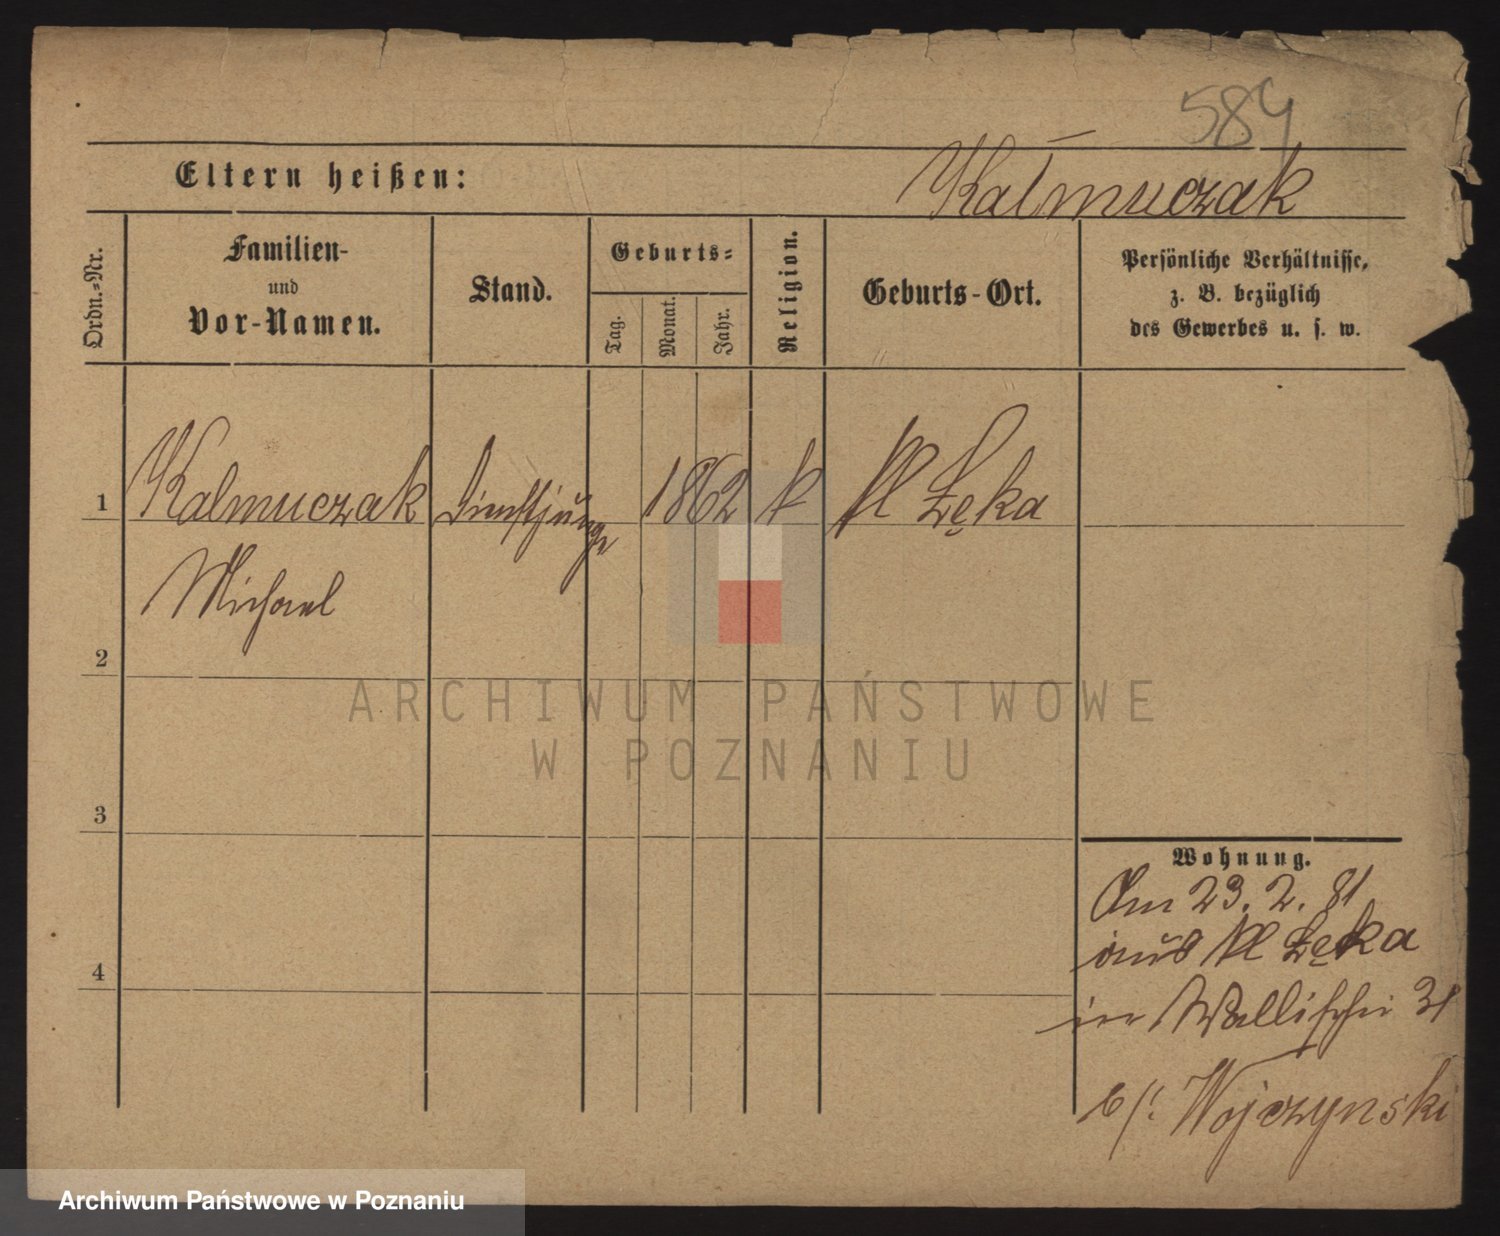 584
Eltern heißen:
Kałmuczak
Ordn.-Nr.
Familien-
und
Vor-Namen.
Stand.
Geburts-
Tag.
Monat.
Jahr.
Religion.
Geburts-Ort.
Persönliche Verhältnisse,
z. B. bezüglich
des Gewerbes u. s. w.
1 Kalmuczak Dienstjunge 1862 k Kl Łęka
Michael
2
3
4
Wohnung.
Am 23. 2. 81
aus Kl Łęka
in Wallischei 31
b/: Wojczynski
ARCHIWUM PAŃSTWOWE
W POZNANIU
Archiwum Państwowe w Poznaniu